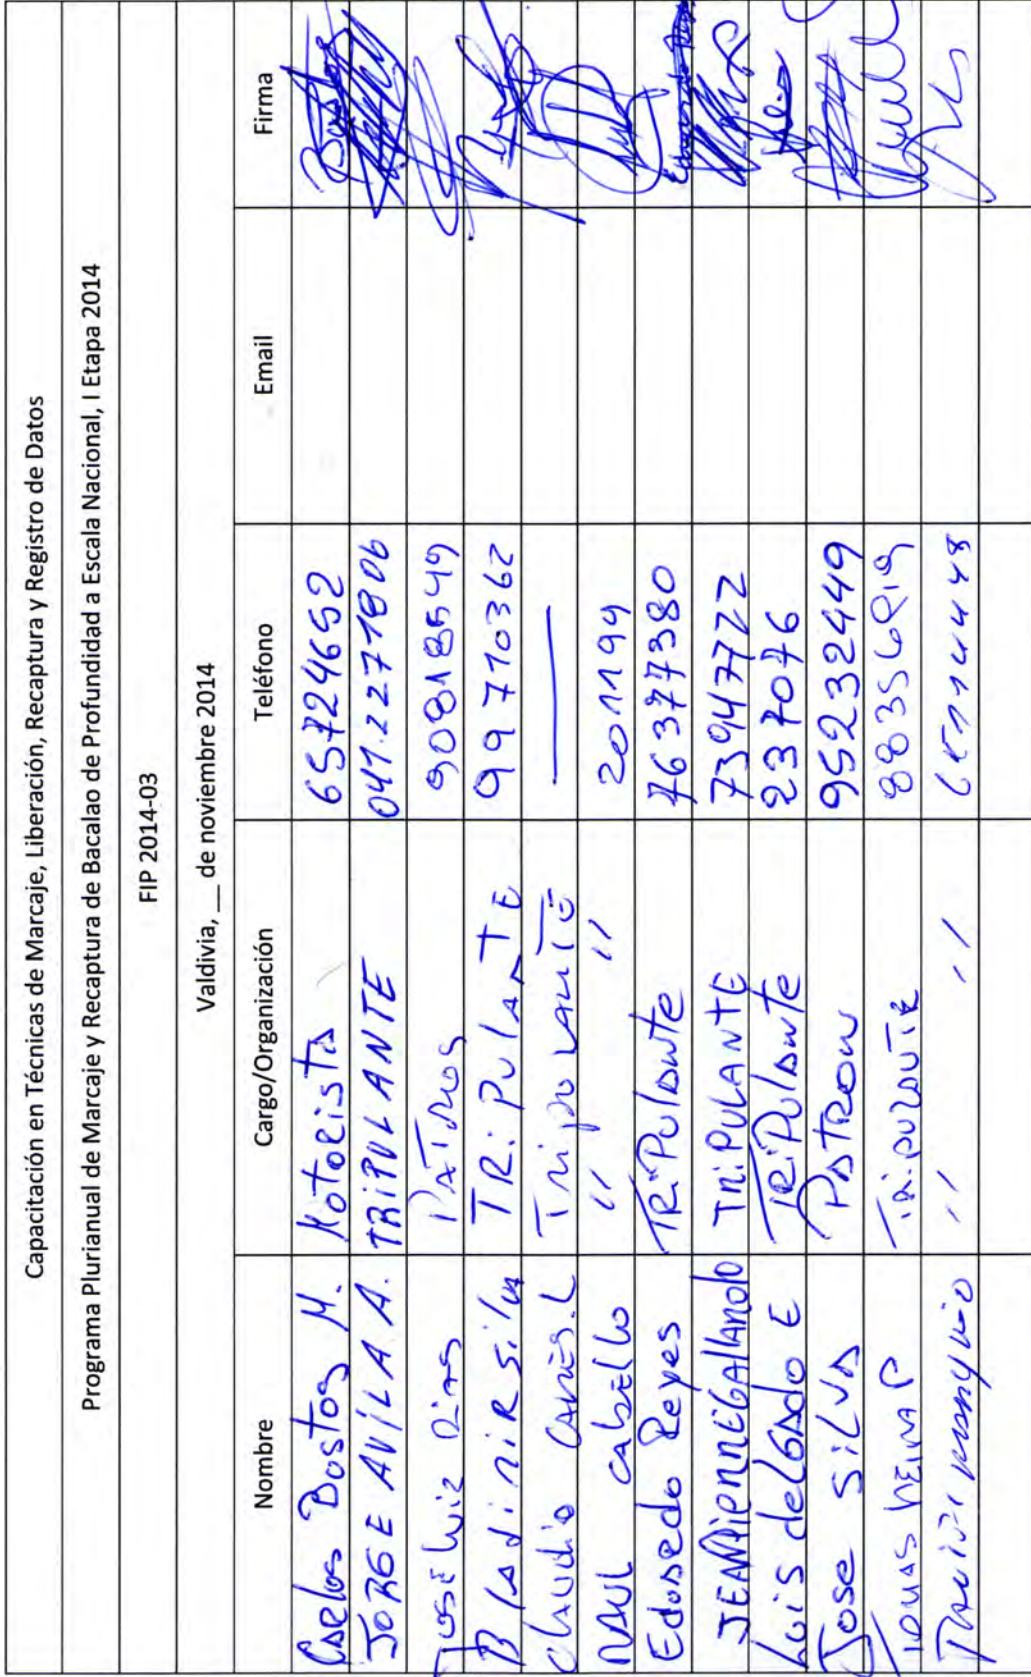 Capacitación en Técnicas de Marcaje, Liberación, Recaptura y Registro de Datos
Programa Plurianual de Marcaje y Recaptura de Bacalao de Profundidad a Escala Nacional, I Etapa 2014
FIP 2014-03
Valdivia, __ de noviembre 2014
Nombre Cargo/Organización Teléfono Email Firma
Carlos Bustos M. Motorista 65724652
JORGE AVILA A. TRIPULANTE 041-2271806
José Luiz PATRON 90818549
Bladimir Silva TRIPULANTE 99710362
Claudio L Tripulante ——
RAUL CABELLO " " 201199
Eduardo Reyes TRiPulante 76377380
JEANPIERRE GALLARDO TRIPULANTE 73947722
Luis delGado E TRiPulante 237076
Jose SiLVA PATRON 95232449
TOMAS P Tripulante
" "